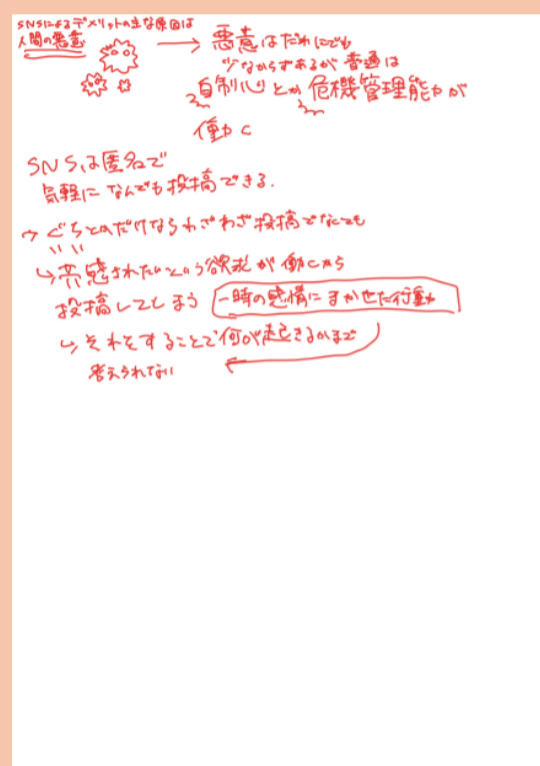 SNSによるデメリットの主な原因は
人間の悪意
悪意はだれにでも
少なからずあるが 普通は
自制心とか危機管理能力が
働く
SNSは匿名で
気軽になんでも投稿できる.
ぐちとかだけならわざわざ投稿でなくても
共感されたいという欲求が働くから
投稿してしまう 一時の感情にまかせた行動
それをすることで何が起きるかまで
考えられない